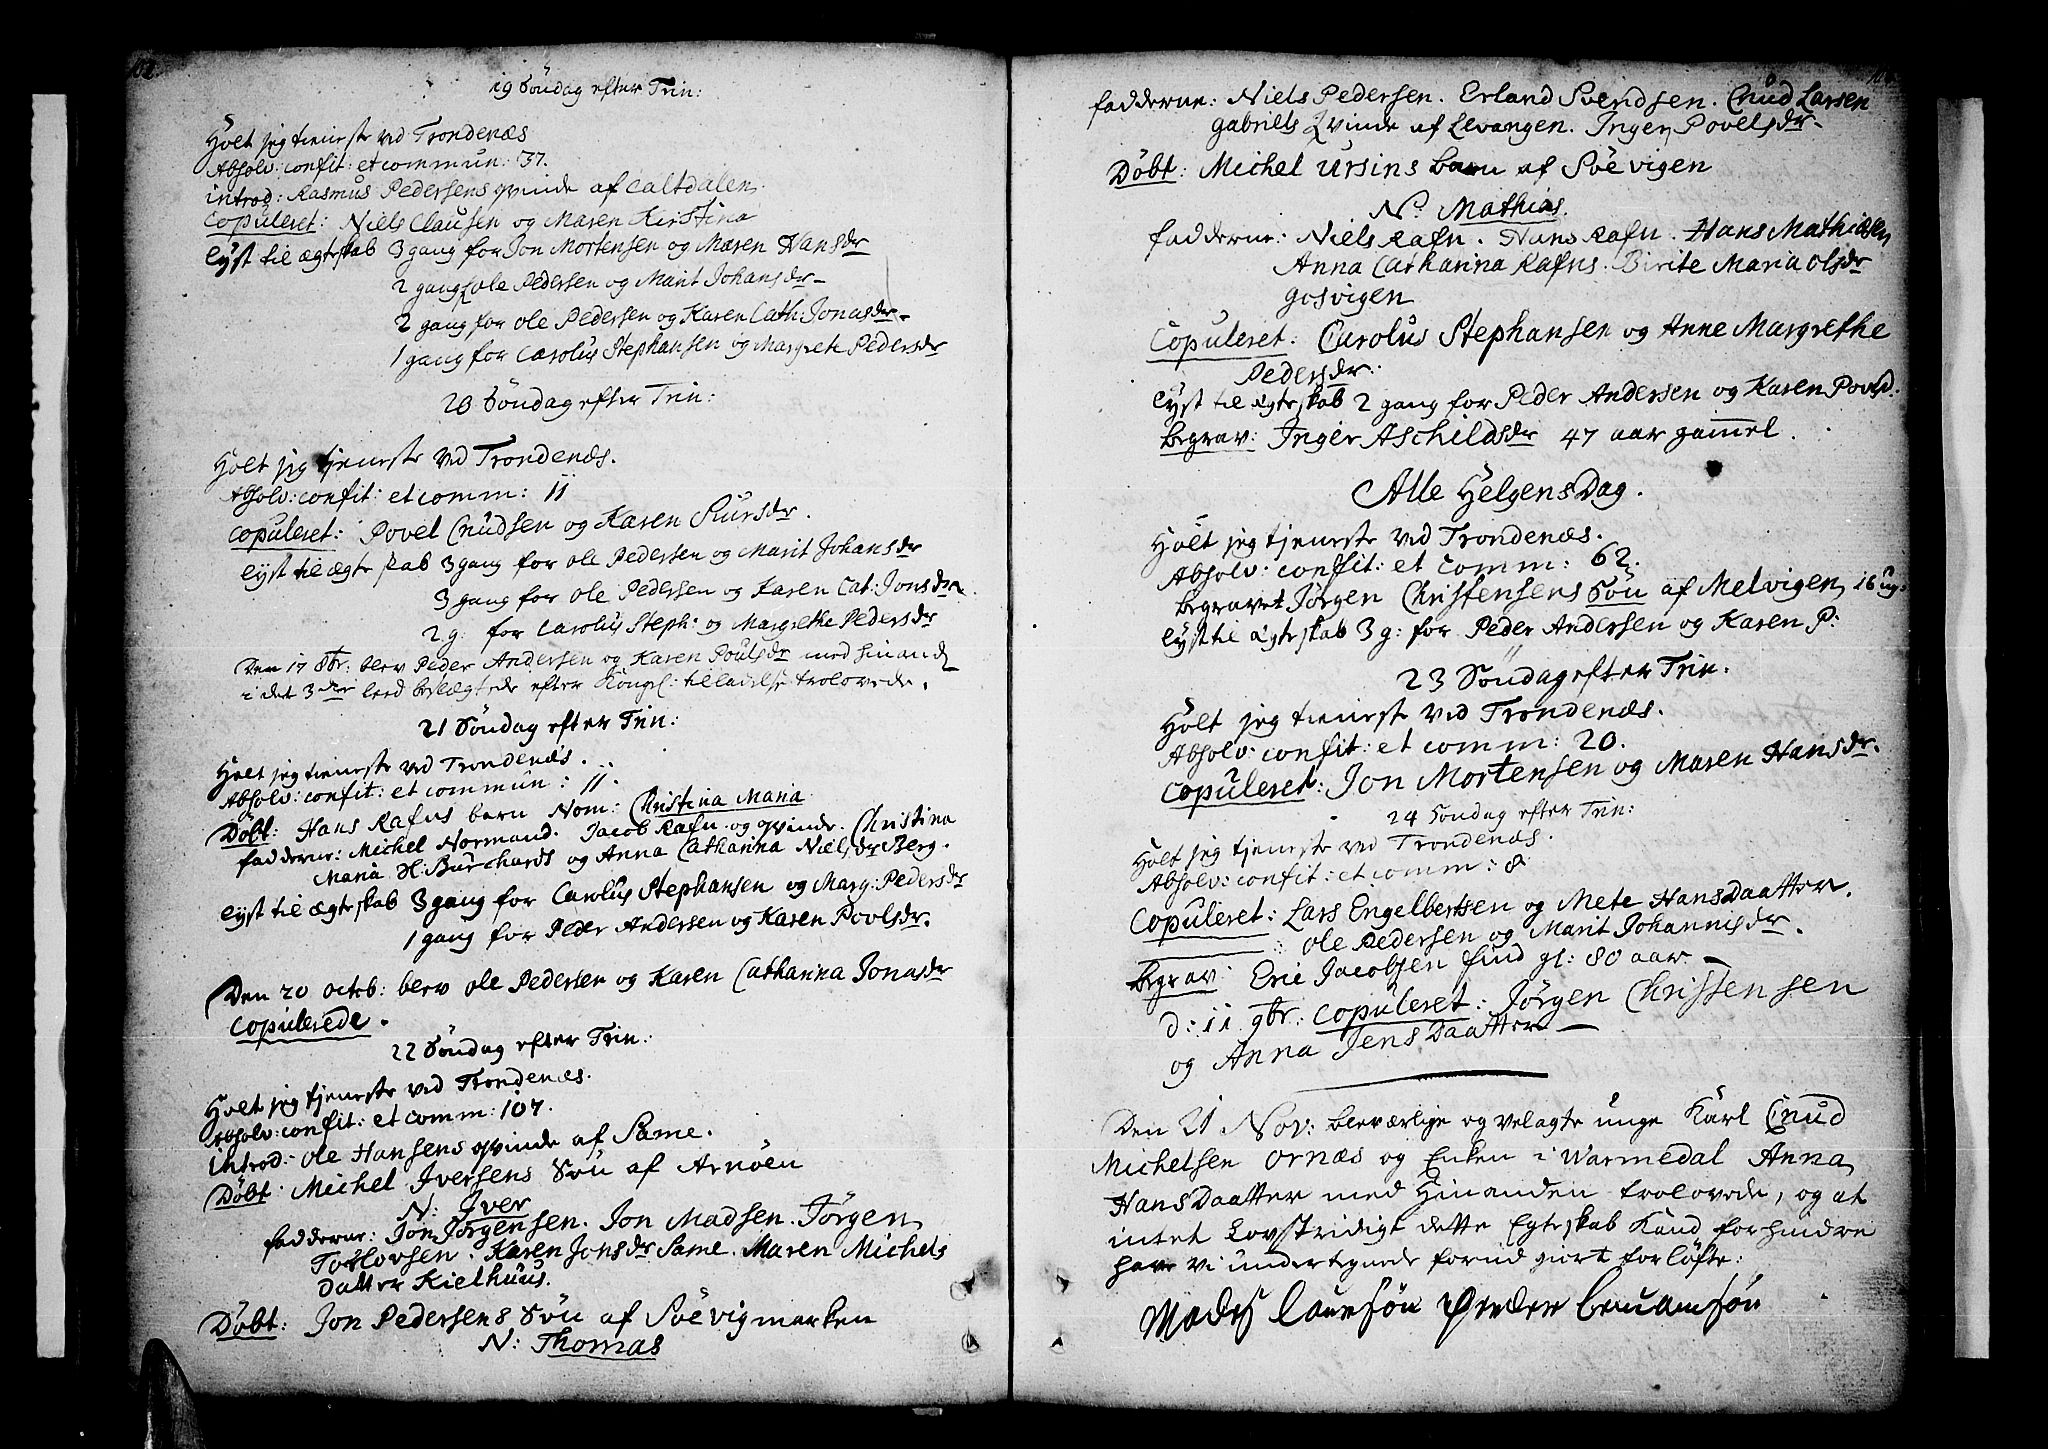 19 Söndag efter Trin:
Holt jeg tieneste ved Trondenæs
Absolv: confit: et commun: 37.
introd: Rasmus Pedersens qvinde af Caltdalen.
Copuleret: Niels Clausen og Maren Kirstina
lyst til ægteskab 3 gang for Jon Mortensen og Maren Hansdr
2 gang ole Pedersen og Marit Johansdr
2 gang for ole Pedersen og Karen Cath: Jonasdr
1 gang for Carolus Stephansen og Margrete Pedersdr
20 Söndag efter Trin:
Holt jeg tjeneste ved Trondenæs.
Absolv: confit: et comm: 11
Copuleret: Povel Cnudsen og Karen Siursdr.
lyst til ægteskab 3 gang for ole Pedersen og Marit Johansdr
3 gang for ole Pedersen og Karen Cat: Jonsdr
2 g: for Carolus Steph: og Margrethe Pedersdr
Den 17 8br: blev Peder Andersen og Karen Poulsdr med hinand
i det 3die leed beslægtede efter Kongel: tilladelse trolovede.
21 Söndag efter Trin:
Holt jeg tieneste ved Trondenæs.
Absolv: confit: et commun: 11.
Döbt: Hans Rafns barn Nom: Christina Maria
fadderne: Michel Normand. Jacob Rafn og qvinde. Christina
Maria H: Burchards og Anna Catharina Nielsdr Berg.
lyst til ægteskab 3 gang for Carolus Stephansen og Marg: Pedersdr
1 gang for Peder Andersen og Karen Povlsdr.
Den 20 octb: blev ole Pedersen og Karen Catharina Jonasdr
copulerede.
22 Söndag efter Trin:
Holt jeg tjeneste ved Trondenæs.
Absolv: confit: et comm: 107.
introd: ole Hansens qvinde af Same.
Döbt: Michel Iversens Sön af Arnöen
N: Iver
fadderne: Jon Jörgensen. Jon Madsen. Jörgen
Tollovsen. Karen Jonsdr Same. Maren Michels
Datter Kielhuus.
Döbt: Jon Pedersens Sön af Söevigmarken
N: Thomas
fadderne: Niels Pedersen. Erland Svendsen. Cnud Larsen
gabriels Qvinde af Levangen. Inger Povelsdr
Döbt: Michel Ursins barn af Söevigen
N. Mathias.
fadderne: Niels Rafn. Hans Rafn. Hans Mathiesen
Anna Catharina Rafns. Birite Maria olsdr
gosvigen
Copuleret: Carolus Stephansen og Anne Margrethe
Pedersdr.
lyst til Egteskab 2 gang for Peder Andersen og Karen Povsd.
begrav: Inger Aschildsdr 47 aar gammel.
Alle Helgens Dag.
Holt jeg tjeneste ved Trondenæs.
Absolv: confit: et comm: 62.
begravet Jörgen Christensens Sön af Melvigen 16 ug.
lyst til Egteskab 3 g: for Peder Andersen og Karen P:
23 Söndag efter Trin.
Holt jeg tieneste ved Trondenæs.
Absolv: confit: et comm: 20.
Copuleret: Jon Mortensen og Maren Hansdr.
24 Söndag efter Trin:
Holt jeg tjeneste ved Trondenæs.
Absolv: confit: et comm: 8
Copuleret: Lars Engelbertsen og Mete HansDaatter.
ole Pedersen og Marit Johannisdr.
begrav: Eric Jacobsen find gl: 80 aar
d: 11 9br: copuleret: Jörgen Christensen
og Anna JensDaatter
Den 21 Nov: blev ærlige og velagte unge Karl Cnud
Michelsen Ornæs og Enken i Warmedal Anna
HansDaatter med Hinanden trolovede, og at
intet Lovstridigt dette Egteskab Kand forhindre
have vi undertegnede forud giort forlöfte:
Mades Laursön Peeder beniamsön